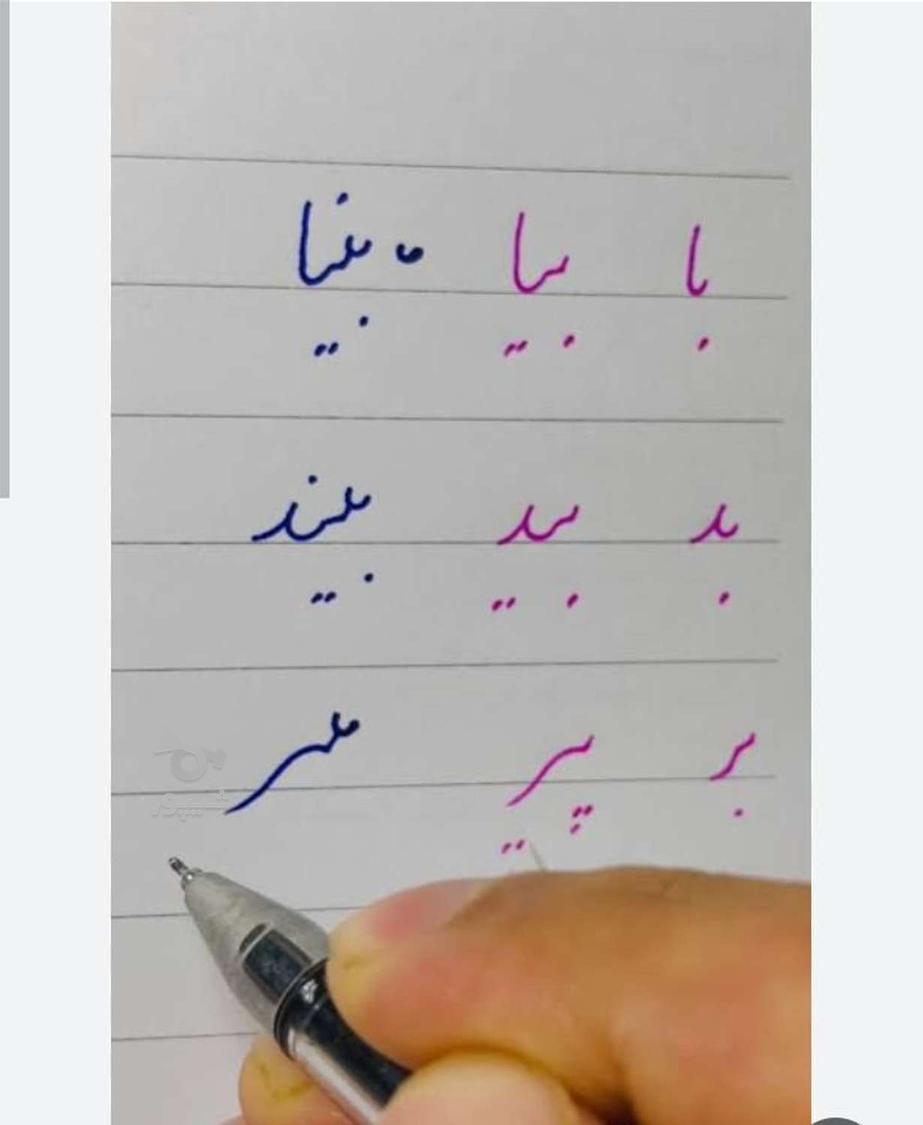 با بیا بینا
بد بید بیند
بر پیر
شیپور